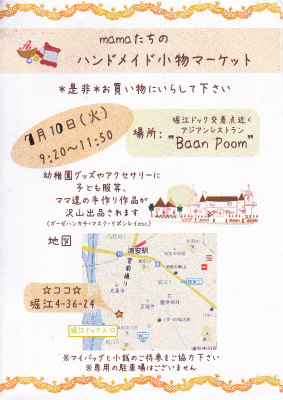 mamaたちの
ハンドメイド小物マーケット
＊是非＊お買い物にいらして下さい
7月10日(火)
9:20～11:50
場所:
堀江ドック交差点近く
アジアンレストラン
"Baan Poom"
幼稚園グッズやアクセサリーに
子ども服等、
ママ達の手作り作品が
沢山出品されます
(ガーゼハンカチ・マスク・リボンレイetc)
地図
浦安駅
☆ココ☆
堀江4-36-24
※マイバッグと小銭のご持参をご協力下さい
※専用の駐車場はございません